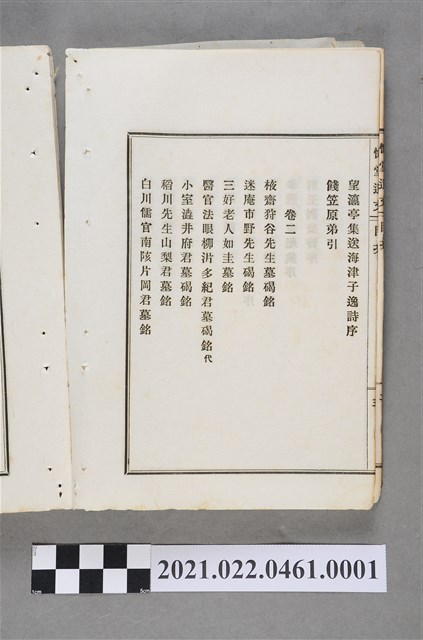 望瀛亭集送海津子逸詩序
餞笠原弟引
卷二
棭齋狩谷先生墓碣銘
迷庵市野先生碣銘
三好老人如圭墓銘
醫官法眼柳沜多紀君墓碣銘代
小室澁井府君墓碣銘
稻川先生山梨君墓銘
白川儒官南陔片岡君墓銘
2021.022.0461.0001